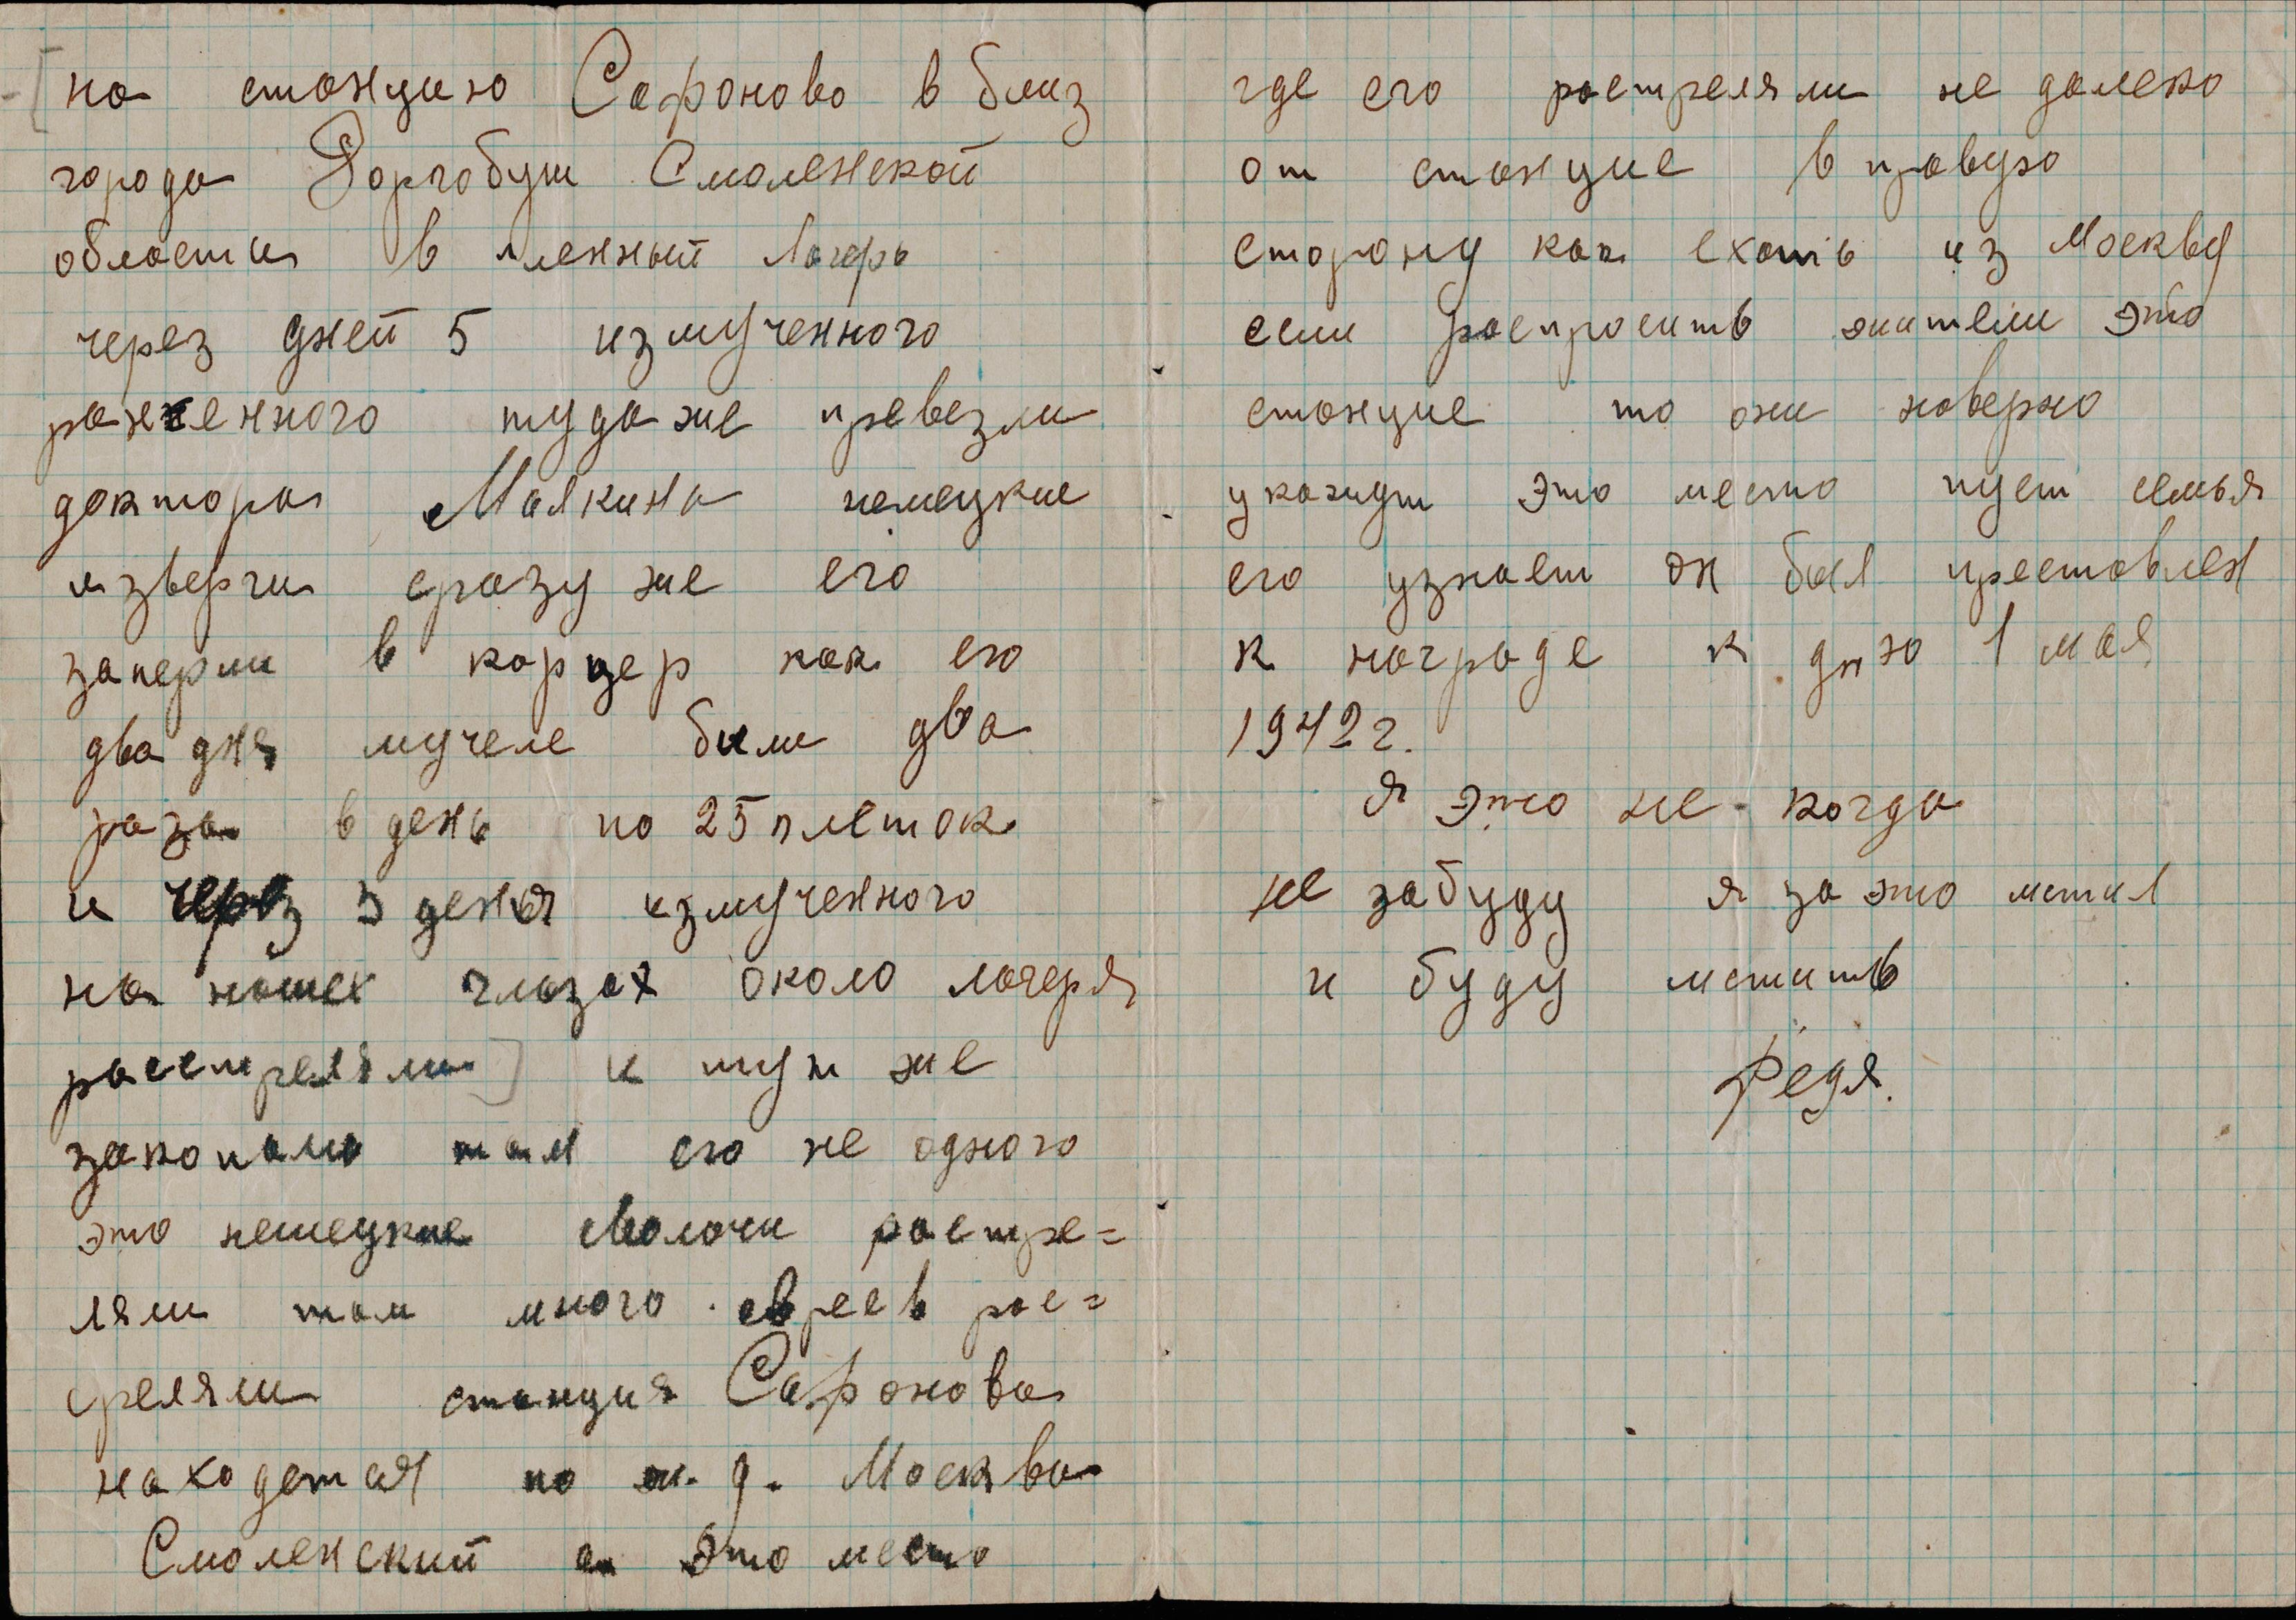 [на станцию Сафоново в близ
города Доргобуш Смоленской
области в пленный лагерь
через дней 5 измученного
раненного туда же превезли
доктора Маякина немецкие
изверги сразу же его
заперли в карцер как его
два дня мучеле били два
раза в день по 25 плеток
и через 3 деня измученного
на нашех глазах около лагеря
расстреляли] и тут же
закопали там его не одного
это немецкие сволочи растре=
ляли там много евреев рас=
среляли станция Сафонова
находется по ж. д. Москва
Смоленский а это место
где его растреляли не далеко
от станцие в правую
сторону как ехать из Москвы
если распросить жители это
станцие то они наверно
укажут это место пуст семья
его узнает он был преставлен
к награде к дню 1 мая
1942 г.
Я это не когда
не забуду я за это мстил
и буду мстить
Федя.